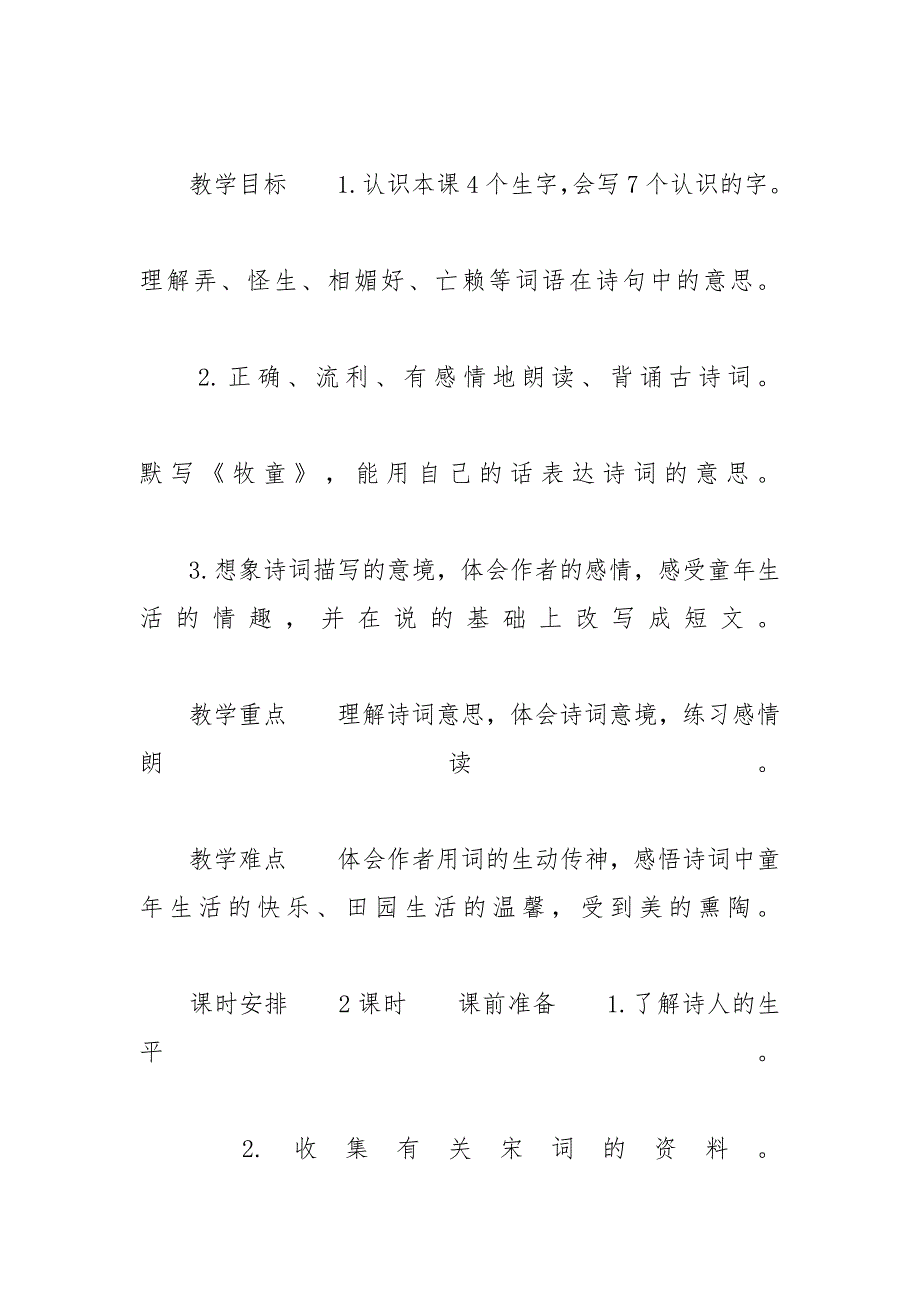 教学目标　　1.认识本课4个生字，会写7个认识的字。
理解弄、怪生、相媚好、亡赖等词语在诗句中的意思。
2.正确、流利、有感情地朗读、背诵古诗词。
默写《牧童》，能用自己的话表达诗词的意思。
3.想象诗词描写的意境，体会作者的感情，感受童年生
活的情趣，并在说的基础上改写成短文。
教学重点　　理解诗词意思，体会诗词意境，练习感情
朗读。
教学难点　　体会作者用词的生动传神，感悟诗词中童
年生活的快乐、田园生活的温馨，受到美的熏陶。
课时安排　　2课时　　课前准备　　1.了解诗人的生
平。
2.收集有关宋词的资料。